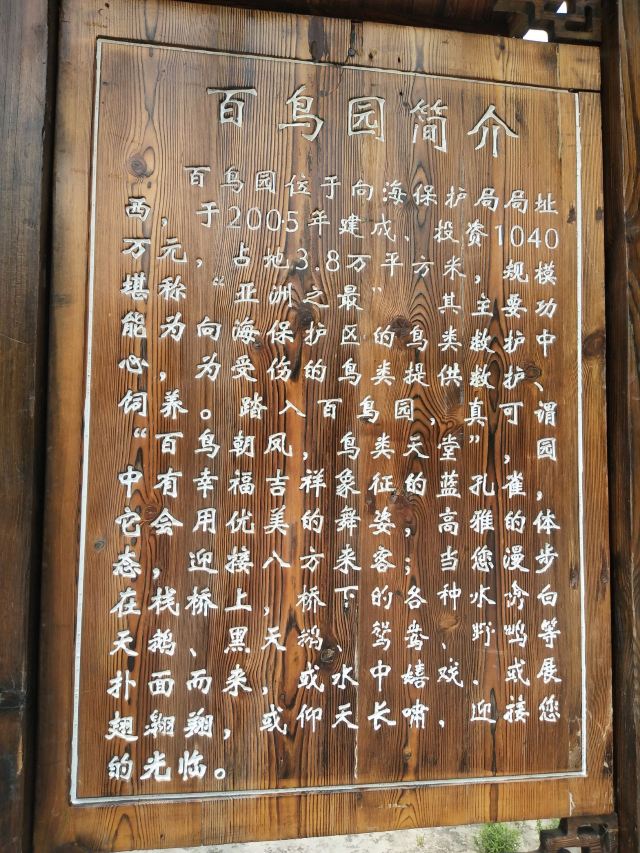 百鸟园简介
百鸟园位于向海保护局局址
西，于2005年建成、投资1040
万元，占地3.8万平方米，规模
堪称“亚洲之最”其主要功
能为，向海保护区的鸟类救护中
心，为受伤的鸟类提供救护、
饲养。踏入百鸟园，真可谓
“百鸟朝凤，鸟类天堂”，园
中有幸福吉祥象征的蓝孔雀，
它会用优美的舞姿，高雅的体
态，迎接八方来客；当您漫步
在栈桥上，桥下的各种水禽白
天鹅、黑天鹅、鸳鸯、野鸭等
扑面而来，或水中嬉戏，或展
翅翱翔，或仰天长啸、迎接您
的光临。